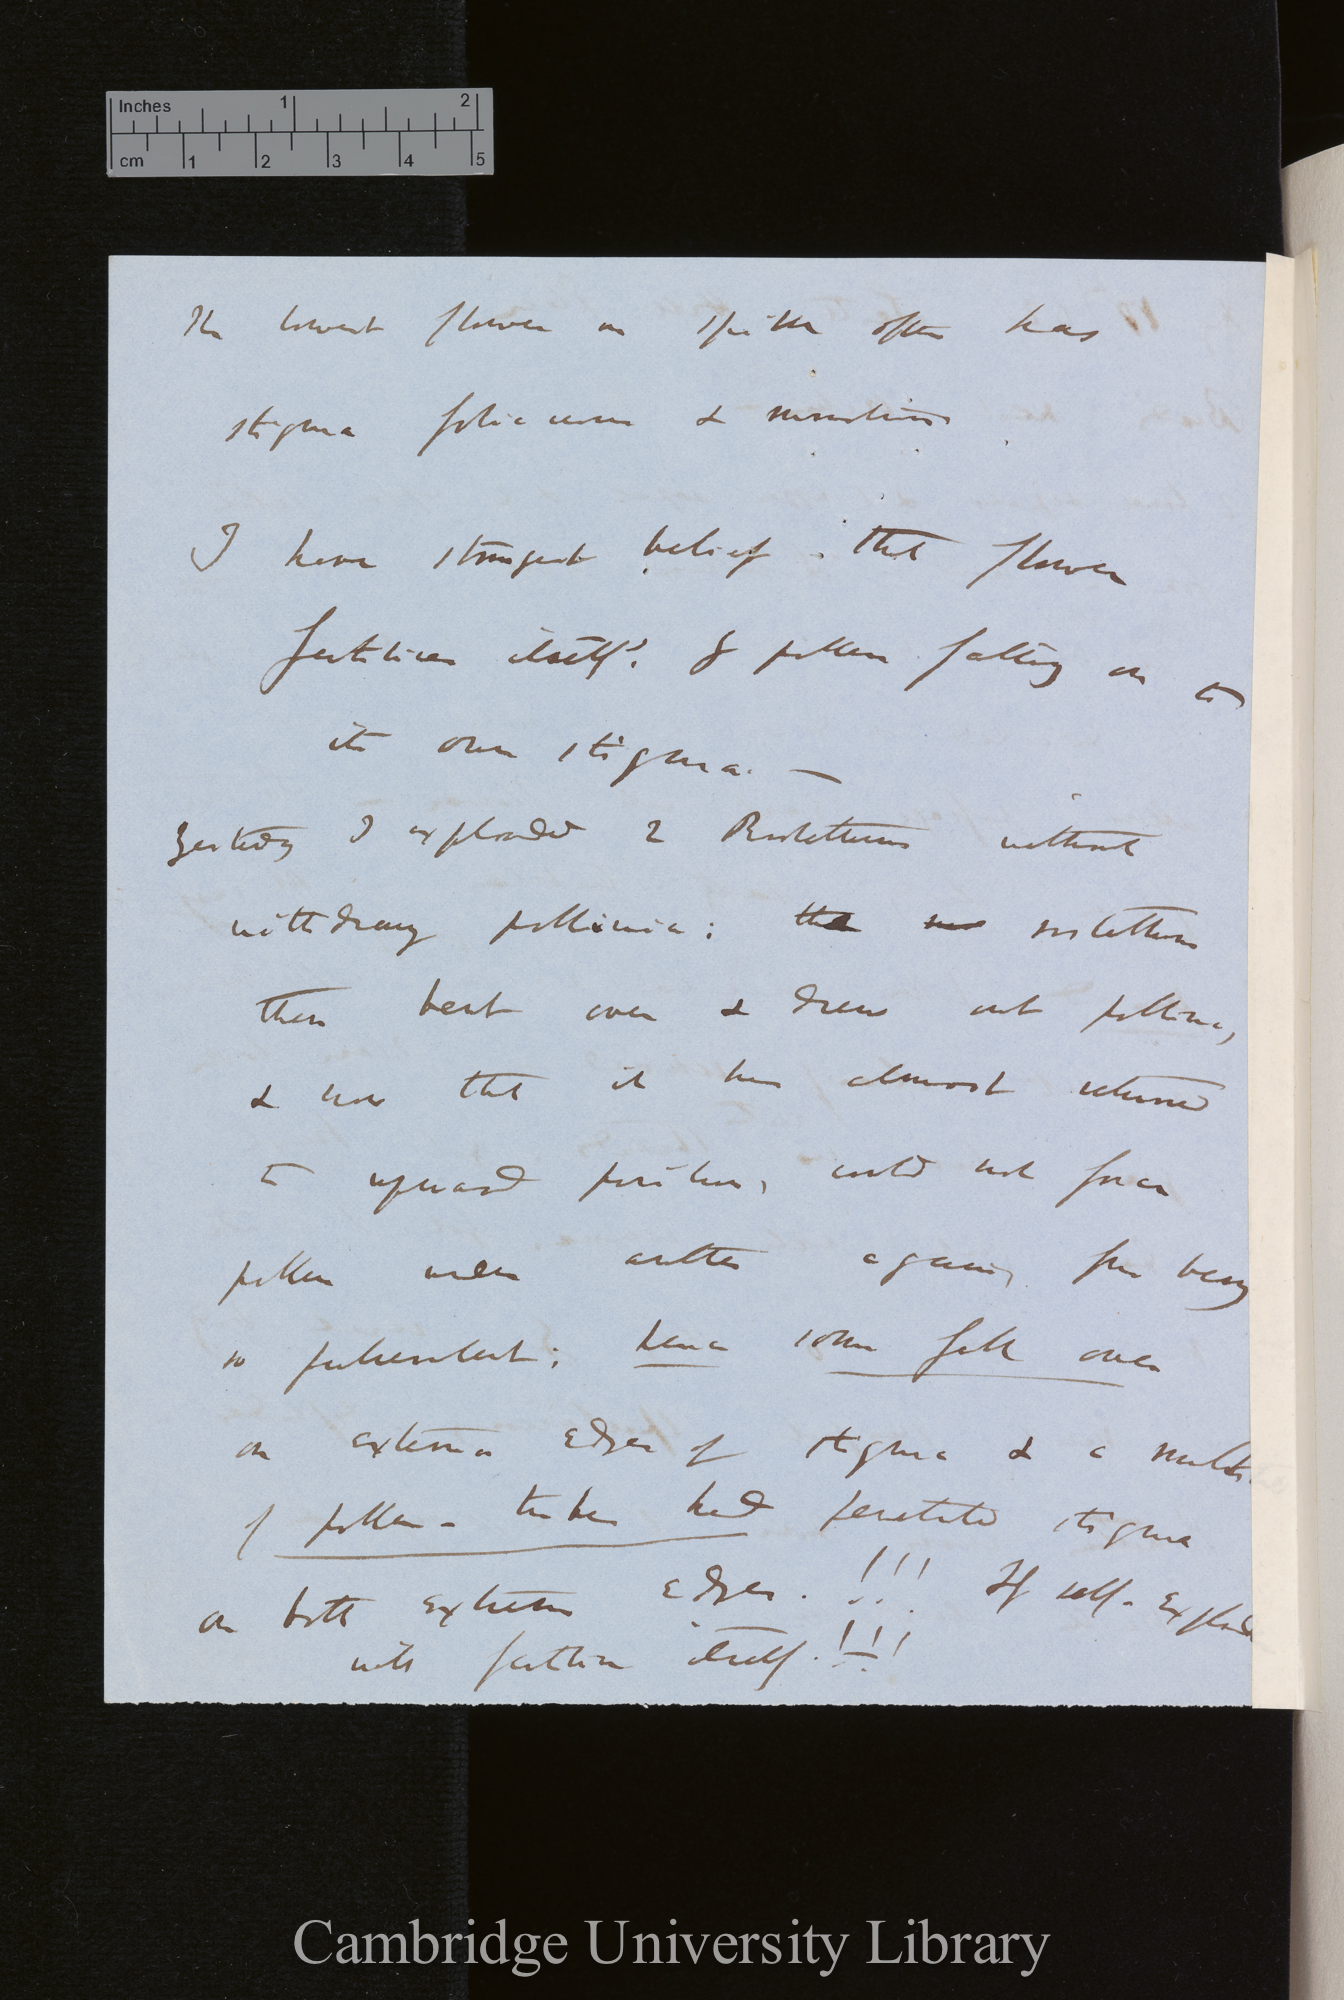 Inches 1 2
cm 1 2 3 4 5
The lowest flower on spike often has
stigma foliaceous & monstrous
I have strongest belief that flower
fertilises itself. & pollen falling on to
its own stigma. —
Yesterday I exploded 2 Rostellums without
withdrawing pollinia: the rostellum
then bent over & drew out pollinia,
& now that it has almost returned
to upward position, could not force
pollen under anther again, from being
so pulverulent; hence some fell over
on external edges of stigma & a
of pollen-tubes had penetrated stigma
on both extreme edges. !!! If self-explode
will fertilise itself. !!!
Cambridge University Library